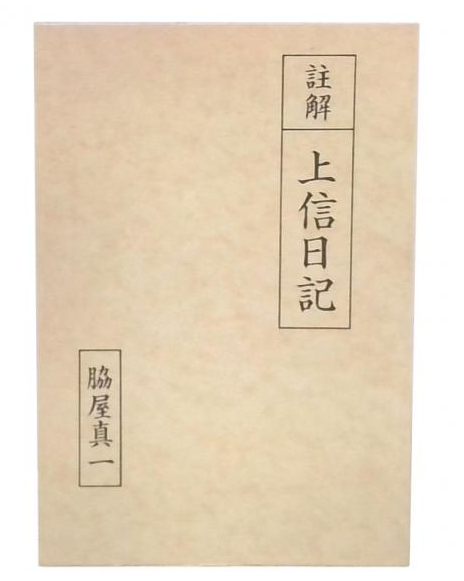 註解
上信日記
脇屋真一